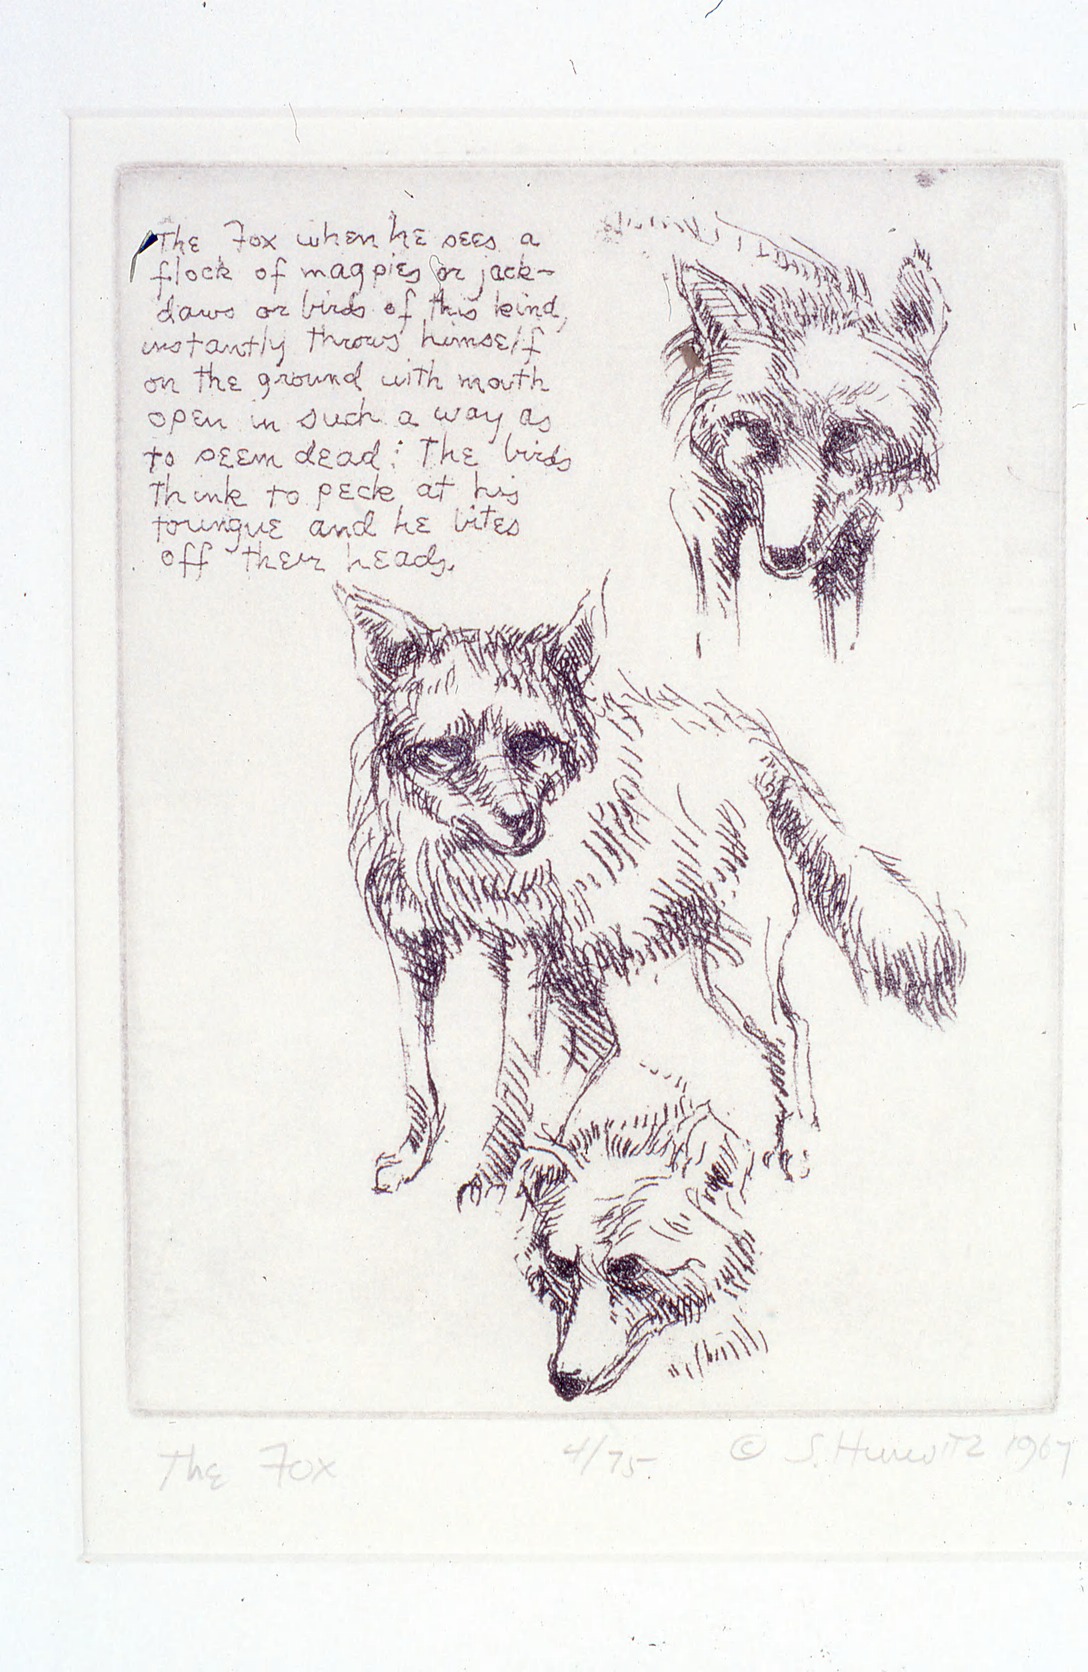 The Fox when he sees a
flock of magpies or jack-
daws or birds of this kind,
instantly throws himself
on the ground with mouth
open in such a way as
to seem dead: The birds
think to peck at his
toungue and he bites
off their heads.
The Fox 4/75 © S. Hurwitz 1967